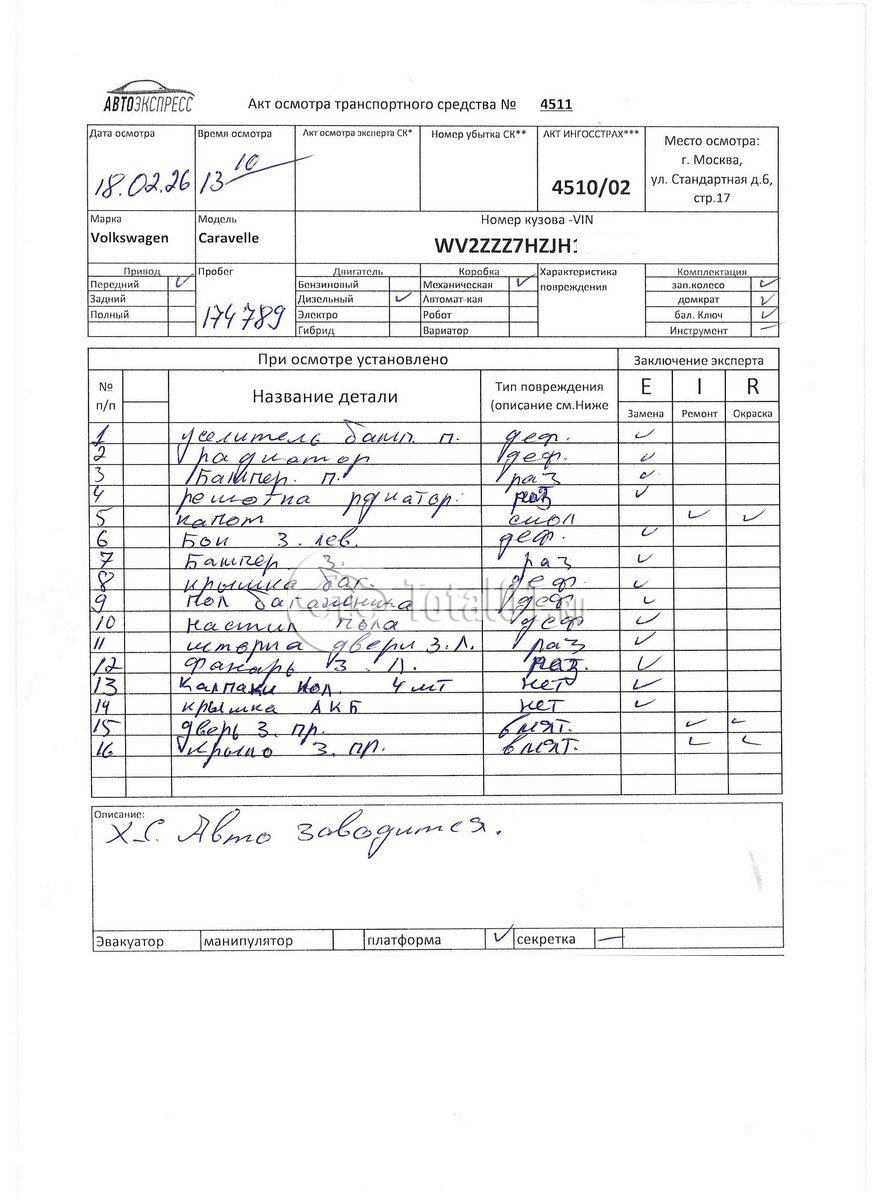 АВТОЭКСПРЕСС
Акт осмотра транспортного средства № 4511
Дата осмотра Время осмотра Акт осмотра эксперта СК* Номер убытка СК** АКТ ИНГОССТРАХ*** Место осмотра:
г. Москва,
18.02.26 13 10 4510/02 ул. Стандартная д.6,
стр.17
Марка Модель Номер кузова -VIN
Volkswagen Caravelle WV2ZZZ7HZJH1
Привод Пробег Двигатель Коробка Характеристика Комплектация
Передний ✓ Бензиновый Механическая ✓ повреждения зап.колесо ✓
Задний 174789 Дизельный ✓ Автомат-кая домкрат ✓
Полный Электро Робот бал. Ключ ✓
Гибрид Вариатор Инструмент —
При осмотре установлено Заключение эксперта
№ п/п Название детали Тип повреждения (описание см.Ниже E I R
Замена Ремонт Окраска
1 уселитель бамп. п. деф. ✓
2 радиатор деф. ✓
3 Бампер. п. раз ✓
4 решотка рдиатор. раз ✓
5 капот ✓ ✓
6 Бок З. лев. деф. ✓
7 Бампер З. раз ✓
8 крышка баг. деф. ✓
9 пол багажника деф ✓
10 настил пола деф ✓
11 шторка двери З.Л. раз ✓
12 Фанарь З. Л. раз. ✓
13 Калпаки кол. 4 шт нет ✓
14 крышка АКБ нет ✓
15 дверь З. пр. вмят. ✓ ✓
16 Крыло З. пр. вмят. ✓ ✓
Total01.ru
Описание:
Х-С. Авто заводится.
Эвакуатор манипулятор платформа ✓ секретка —